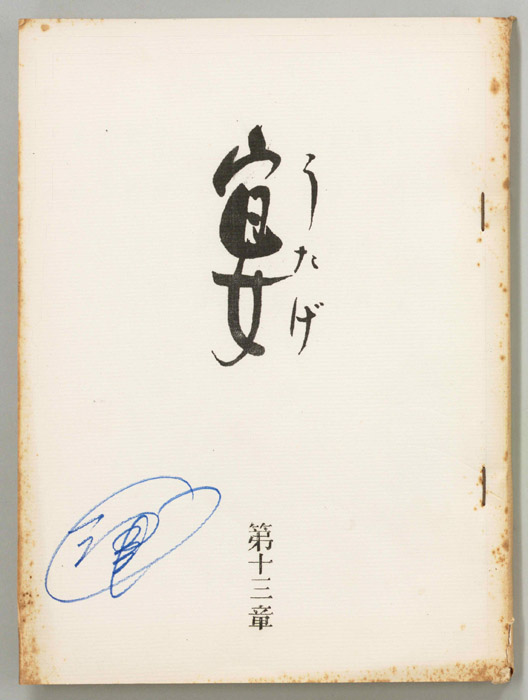 宴
うたげ
第十三章